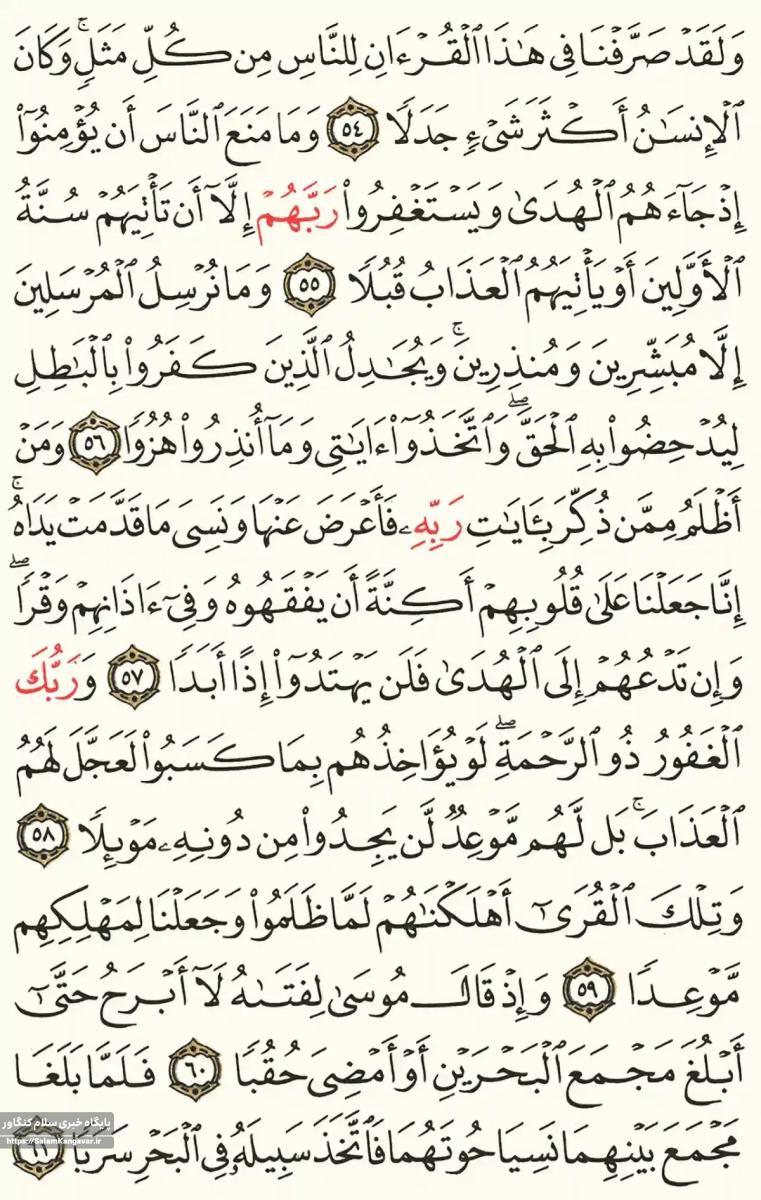 وَلَقَدۡ صَرَّفۡنَا فِي هَٰذَا ٱلۡقُرۡءَانِ لِلنَّاسِ مِن كُلِّ مَثَلٖۚ وَكَانَ
ٱلۡإِنسَٰنُ أَكۡثَرَ شَيۡءٖ جَدَلٗا ٥٤ وَمَا مَنَعَ ٱلنَّاسَ أَن يُؤۡمِنُوٓاْ
إِذۡ جَآءَهُمُ ٱلۡهُدَىٰ وَيَسۡتَغۡفِرُواْ رَبَّهُمۡ إِلَّآ أَن تَأۡتِيَهُمۡ سُنَّةُ
ٱلۡأَوَّلِينَ أَوۡ يَأۡتِيَهُمُ ٱلۡعَذَابُ قُبُلٗا ٥٥ وَمَا نُرۡسِلُ ٱلۡمُرۡسَلِينَ
إِلَّا مُبَشِّرِينَ وَمُنذِرِينَۚ وَيُجَٰدِلُ ٱلَّذِينَ كَفَرُواْ بِٱلۡبَٰطِلِ
لِيُدۡحِضُواْ بِهِ ٱلۡحَقَّۖ وَٱتَّخَذُوٓاْ ءَايَٰتِي وَمَآ أُنذِرُواْ هُزُوٗا ٥٦ وَمَنۡ
أَظۡلَمُ مِمَّن ذُكِّرَ بِـَٔايَٰتِ رَبِّهِۦ فَأَعۡرَضَ عَنۡهَا وَنَسِيَ مَا قَدَّمَتۡ يَدَاهُۚ
إِنَّا جَعَلۡنَا عَلَىٰ قُلُوبِهِمۡ أَكِنَّةً أَن يَفۡقَهُوهُ وَفِيٓ ءَاذَانِهِمۡ وَقۡرٗاۖ
وَإِن تَدۡعُهُمۡ إِلَى ٱلۡهُدَىٰ فَلَن يَهۡتَدُوٓاْ إِذًا أَبَدٗا ٥٧ وَرَبُّكَ
ٱلۡغَفُورُ ذُو ٱلرَّحۡمَةِۖ لَوۡ يُؤَاخِذُهُم بِمَا كَسَبُواْ لَعَجَّلَ لَهُمُ
ٱلۡعَذَابَۚ بَل لَّهُم مَّوۡعِدٞ لَّن يَجِدُواْ مِن دُونِهِۦ مَوۡئِلٗا ٥٨
وَتِلۡكَ ٱلۡقُرَىٰٓ أَهۡلَكۡنَٰهُمۡ لَمَّا ظَلَمُواْ وَجَعَلۡنَا لِمَهۡلِكِهِم
مَّوۡعِدٗا ٥٩ وَإِذۡ قَالَ مُوسَىٰ لِفَتَىٰهُ لَآ أَبۡرَحُ حَتَّىٰٓ
أَبۡلُغَ مَجۡمَعَ ٱلۡبَحۡرَيۡنِ أَوۡ أَمۡضِيَ حُقُبٗا ٦٠ فَلَمَّا بَلَغَا
مَجۡمَعَ بَيۡنِهِمَا نَسِيَا حُوتَهُمَا فَٱتَّخَذَ سَبِيلَهُۥ فِي ٱلۡبَحۡرِ سَرَبٗا ٦١
پایگاه خبری سلام کنگاور
https://SalamKangavar.ir